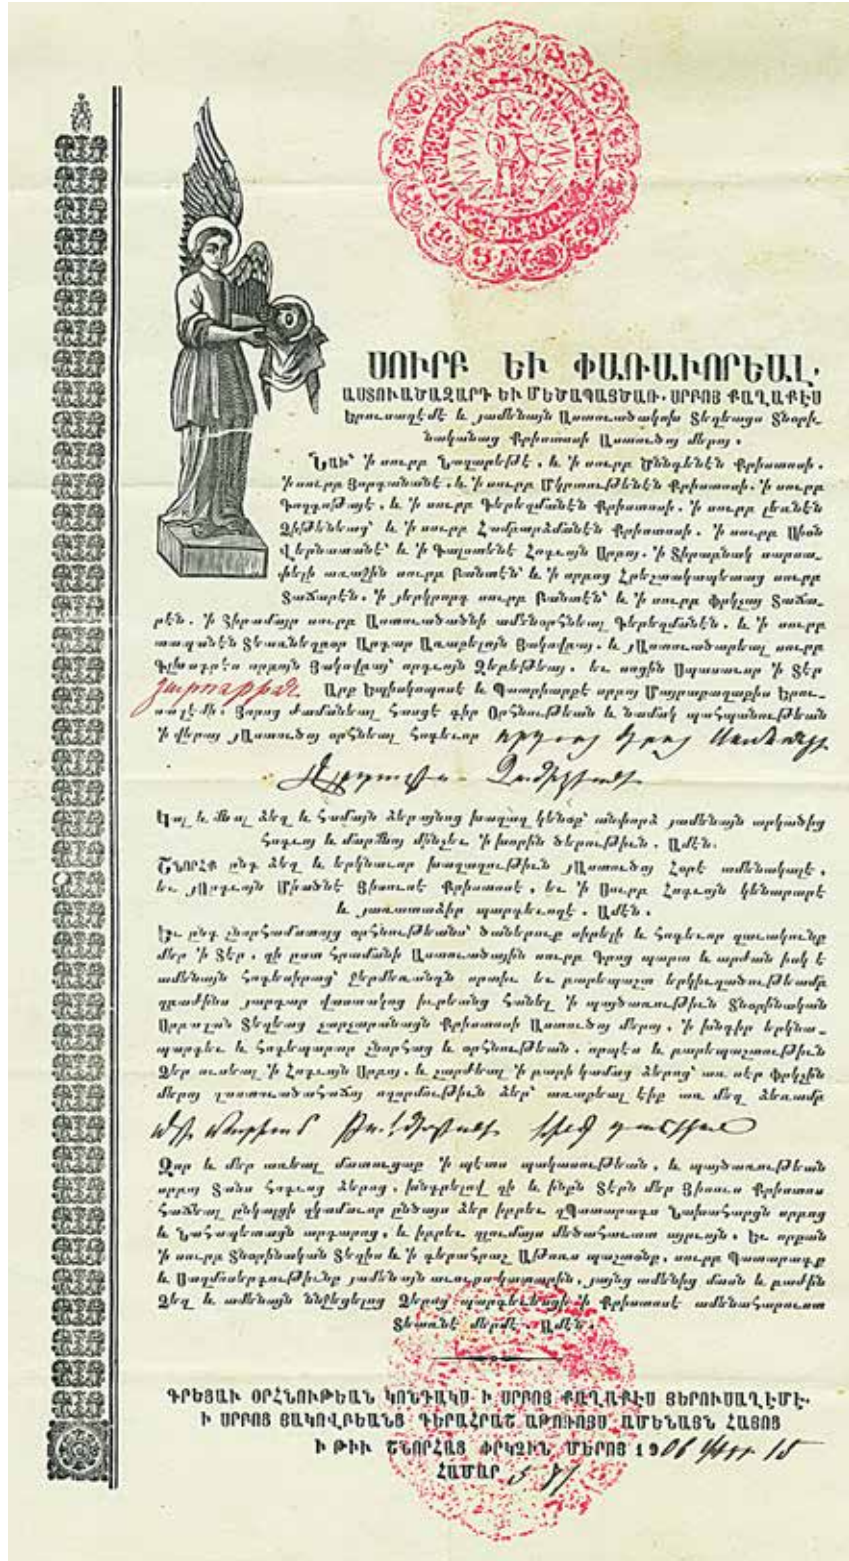 ՍՈՒՐԲ ԵՒ ՓԱՌԱՒՈՐԵԱԼ.
ԱՍՏՈՒԱԾԱԶԱՐԴ ԵՒ ՄԵԾԱՊԱՅԾԱՌ. ՍՐԲՈՅ ՔԱՂԱՔԷՍ
Երուսաղէմէ և յամենայն Աստուածակոխ Տեղեացս Տնօրի-
նականաց Քրիստոսի Աստուծոյ մերոյ.
Նախ՝ ՚ի սուրբ Նազարեթէ, և ՚ի սուրբ Ծննդենէն Քրիստոսի.
՚ի սուրբ Յորդանանէ, և ՚ի սուրբ Մկրտութենէն Քրիստոսի. ՚ի սուրբ
Գողգոթայէ, և ՚ի սուրբ Գերեզմանէն Քրիստոսի. ՚ի սուրբ լեռնէն
Ձիթենեաց՝ և ՚ի սուրբ Համբարձմանէն Քրիստոսի. ՚ի սուրբ Սիօն
Վերնատանէ՝ և ՚ի Գալստենէ Հոգւոյն Սրբոյ. ՚ի Տիրարնակ սարսա-
փելի առաջին սուրբ Բանտէն՝ և ՚ի սրբոց Հրեշտակապետաց սուրբ
Տաճարէն. ՚ի յերկրորդ սուրբ Բանտէն՝ և ՚ի սուրբ Փրկչայ Տաճա-
րէն. ՚ի Տիրամայր սուրբ Աստուածածնի ամենօրհնեալ Գերեզմանէն. և ՚ի սուրբ
առաքելոյն Յակովբայ, և յԱստուածարեալ սուրբ
Գլխադրէս սրբոյն Յակովբայ՝ որդւոյն Զեբեթեայ. եւ սոցին Սպասաւոր ՚ի Տէր
Յարութիւն Արք Եպիսկոպոսէ և Պատրիարքէ սրբոյ Մայրաքաղաքիս Երու-
սաղէմի. Յորոց ժամանեալ հասցէ գիր Օրհնութեան և նամակ պահպանութեան
՚ի վերայ յԱստուծոյ օրհնեալ հոգեւոր
Կալ և մնալ ձեզ և համայն ձերայնոց խաղաղ կենօք՝ անփորձ յամենայն արկածից
հոգւոյ և մարմնոյ մինչեւ ՚ի խորին ծերութիւն. Ամէն.
ՇՆՈՐՀՔ ընդ ձեզ և երկնաւոր խաղաղութիւն յԱստուծոյ Հօրէ ամենակալէ,
եւ յՈրդւոյն Միածնէ Յիսուսէ Քրիստոսէ, եւ ՚ի Սուրբ Հոգւոյն կենարարէ
և յառատաձիր պարգեւողէ. Ամէն.
Եւ ընդ շնորհամատոյց օրհնութեանս՝ ծաներուք սիրելի և հոգեւոր զաւակունք
մեր ՚ի Տէր, զի ըստ հրամանի Աստուածային սուրբ Գրոց պարտ և արժան իսկ է
ամենայն հոգեսիրաց՝ ջերմեռանդն սրտիւ եւ բարեպաշտ երկիւղածութեամբ
զբաժինս յարդար վաստակոց իւրեանց հանել ՚ի պայծառութիւն Տնօրինական
Սրբազան Տեղեաց չարչարանացն Քրիստոսի Աստուծոյ մերոյ, ՚ի խնդիր երկնա-
պարգեւ և հոգեպարար շնորհաց և օրհնութեան. որպէս և բարեպաշտութիւն
Ձեր ուսեալ ՚ի Հոգւոյն Սրբոյ, և շարժեալ ՚ի բարի կամաց ձերոց՝ առ սէր Փրկչին
մերոյ զաստուածահաճոյ ողորմութիւն ձեր՝ առաքեալ էիք առ մեզ ձեռամբ
Զոր և մեր առեալ մատուցաք ՚ի պէտս պակասութեան, և պայծառութեան
սրբոյ Տանս հոգւոց ձերոց, խնդրելով զի և ինքն Տէրն մեր Յիսուս Քրիստոս
հաճեալ ընկալցի զկամաւոր ընծայս ձեր իբրեւ զՊատարագս Նախահարցն սրբոց
և Նահապետացն արդարոց, և իբրեւ զլումայս մեծահաւատ այրւոյն. Եւ որքան
՚ի սուրբ Տնօրինական Տեղիս և ՚ի գերահրաշ Աթոռս պաշտօնք, սուրբ Պատարագք
և Սաղմոսերգութիւնք յամենայն աւուր կատարին, յայնց ամենից մասն և բաժին
Ձեզ և ամենայն ննջեցելոց Ձերոց պարգեւեսցի ՚ի Քրիստոսէ ամենահարուստ
Տեառնէ մերմէ. Ամէն.
ԳՐԵՑԱՒ ՕՐՀՆՈՒԹԵԱՆ ԿՈՆԴԱԿՍ Ի ՍՐԲՈՅ ՔԱՂԱՔԷՍ ՅԵՐՈՒՍԱՂԷՄԷ.
Ի ՍՐԲՈՑ ՅԱԿՈՎԲԵԱՆՑ ԳԵՐԱՀՐԱՇ ԱԹՈՌՈՅՍ ԱՄԵՆԱՅՆ ՀԱՅՈՑ
Ի ԹԻՒ ՇՆՈՐՀԱՑ ՓՐԿՉԻՆ ՄԵՐՈՅ 1906
ՀԱՄԱՐ